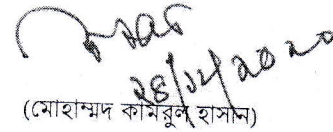 ২৪/১২/২০২০
(মোহাম্মদ কামরুল হাসান)